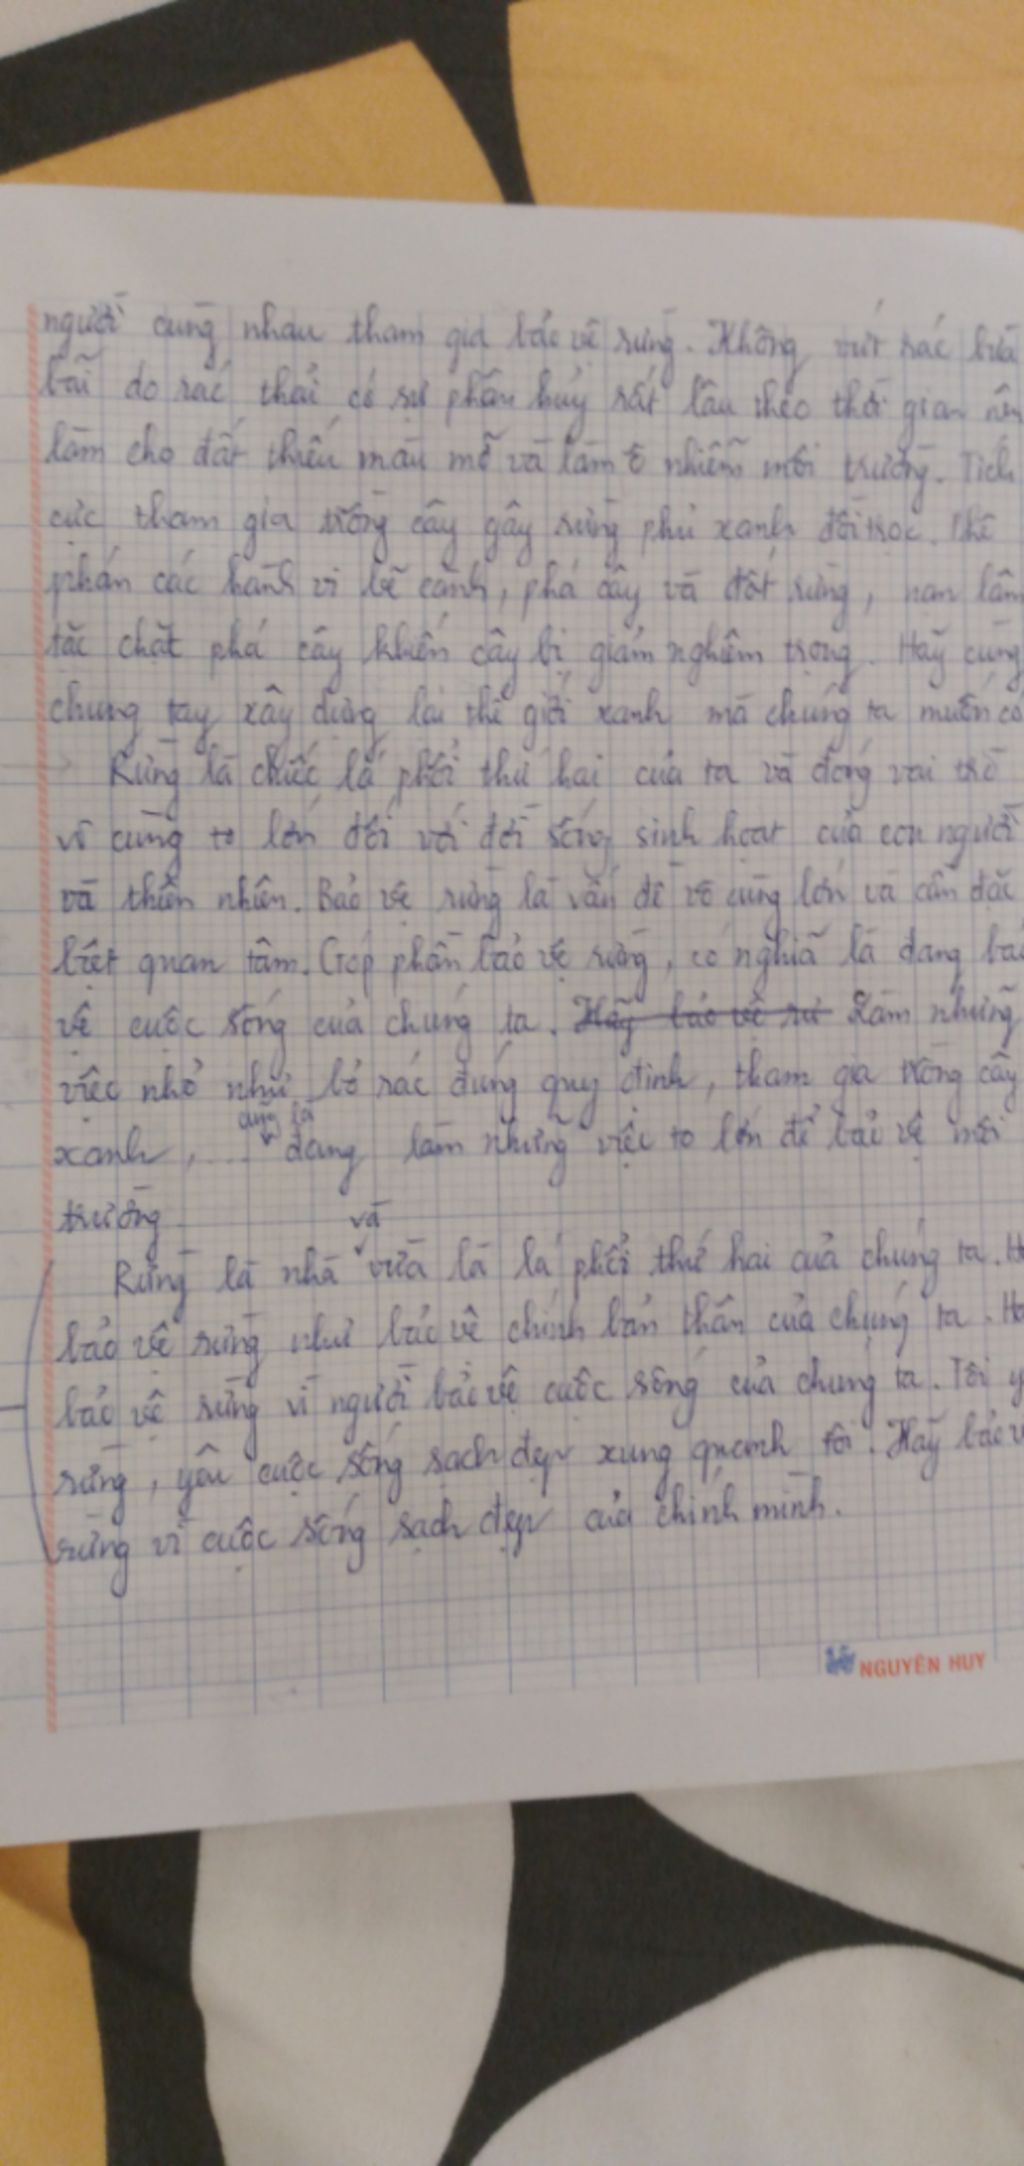 người cùng nhau tham gia bảo vệ rừng. Không vứt rác bừa
bãi do rác thải có sự phân hủy rất lâu theo thời gian nên
làm cho đất thiếu màu mỡ và làm ô nhiễm môi trường. Tích
cực tham gia trồng cây gây rừng phủ xanh đồi trọc. Phê
phán các hành vi bẻ cành, phá cây và đốt rừng, nạn lâm
tặc chặt phá cây khiến cây bị giảm nghiêm trọng. Hãy cùng
chung tay xây dựng lại thế giới xanh mà chúng ta muốn có
Rừng là chiếc lá phổi thứ hai của ta và đóng vai trò
vô cùng to lớn đối với đời sống sinh hoạt của con người
và thiên nhiên. Bảo vệ rừng là vấn đề vô cùng lớn và cần đặc
biệt quan tâm. Góp phần bảo vệ rừng, có nghĩa là đang bảo
vệ cuộc sống của chúng ta. Hãy bảo vệ rừ Làm những
việc nhỏ như bỏ rác đúng quy định, tham gia trồng cây
xanh, .... cũng là đang làm những việc to lớn để bảo vệ môi
trường
Rừng là nhà và vừa là lá phổi thứ hai của chúng ta.
bảo vệ rừng như bảo vệ chính bản thân của chúng ta.
bảo vệ rừng vì người bảo vệ cuộc sống của chúng ta. Tôi
rừng, yêu cuộc sống sạch đẹp xung quanh tôi. Hãy bảo
rừng vì cuộc sống sạch đẹp của chính mình.
NGUYÊN HUY